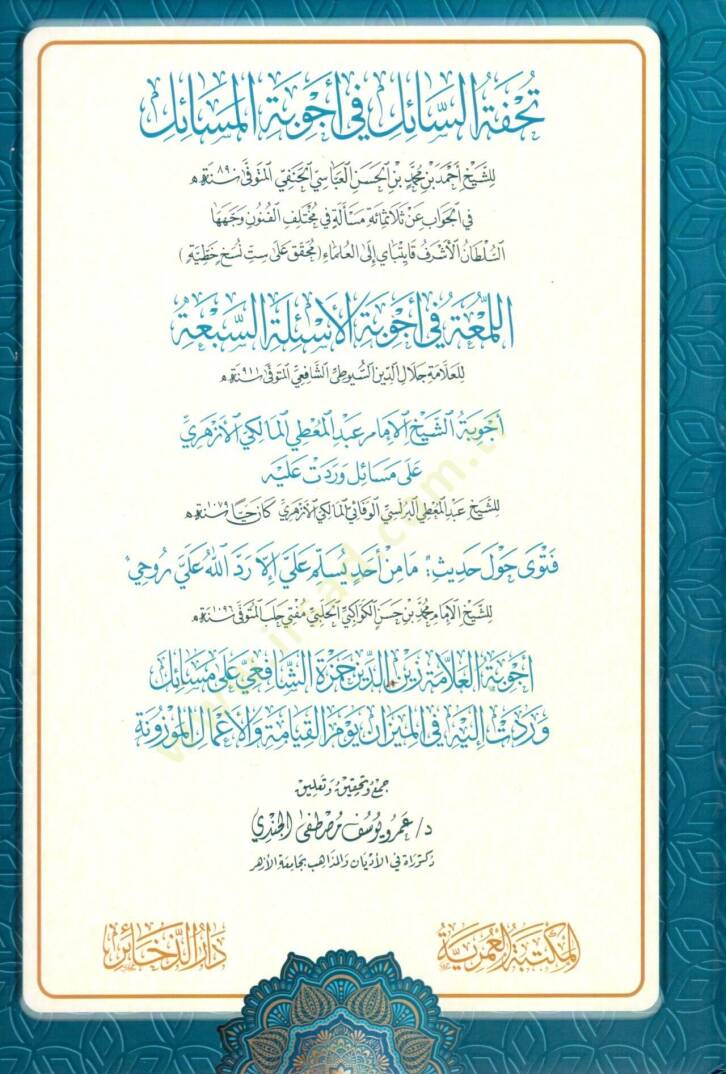 تُحْفَةُ السَّائِلِ فِي أَجْوِبَةِ المَسَائِلِ
لِلشَّيْخِ أَحْمَدَ بْنِ مُحَمَّدِ بْنِ الحَسَنِ العَبَّاسِيِّ الحَنَفِيِّ المُتَوَفَّى سَنَةَ ٨٩٠ هـ
فِي الجَوَابِ عَنْ ثَلَاثِمِائَةِ مَسْأَلَةٍ فِي مُخْتَلِفِ الفُنُونِ وَجَّهَهَا
السُّلْطَانُ الأَشْرَفُ قَايِتْبَاي إِلَى العُلَمَاءِ (مُحَقَّقٌ عَلَى سِتِّ نُسَخٍ خَطِّيَّةٍ)
اللُّمْعَةُ فِي أَجْوِبَةِ الأَسْئِلَةِ السَّبْعَةِ
لِلعَلَّامَةِ جَلَالِ الدِّينِ السُّيُوطِيِّ الشَّافِعِيِّ المُتَوَفَّى سَنَةَ ٩١١ هـ
أَجْوِبَةُ الشَّيْخِ الإِمَامِ عَبْدِ المُعْطِي المَالِكِيِّ الأَزْهَرِيِّ
عَلَى مَسَائِلَ وَرَدَتْ عَلَيْهِ
لِلشَّيْخِ عَبْدِ المُعْطِي البُرُلُّسِيِّ الوَفَائِيِّ المَالِكِيِّ الأَزْهَرِيِّ كَانَ حَيًّا سَنَةَ ١٠٧٩ هـ
فَتْوَى حَوْلَ حَدِيثِ: مَا مِنْ أَحَدٍ يُسَلِّمُ عَلَيَّ إِلَّا رَدَّ اللهُ عَلَيَّ رُوحِي
لِلشَّيْخِ الإِمَامِ مُحَمَّدِ بْنِ حَسَنٍ الكَوَاكِبِيِّ الحَلَبِيِّ مُفْتِي حَلَبَ المُتَوَفَّى سَنَةَ ١٠٩٦ هـ
أَجْوِبَةُ العَلَّامَةِ زَيْنِ الدِّينِ حَمْزَةَ الشَّافِعِيِّ عَلَى مَسَائِلَ
وَرَدَتْ إِلَيْهِ فِي المِيزَانِ يَوْمَ القِيَامَةِ وَالأَعْمَالِ المَوْزُونَةِ
جمع وتحقيق وتعليق
د/ عمرو يوسف مصطفى الجندي
دكتوراة في الأديان والمذاهب بجامعة الأزهر
المَكْتَبَةُ العُمَرِيَّةُ
دَارُ الذَّخَائِرِ